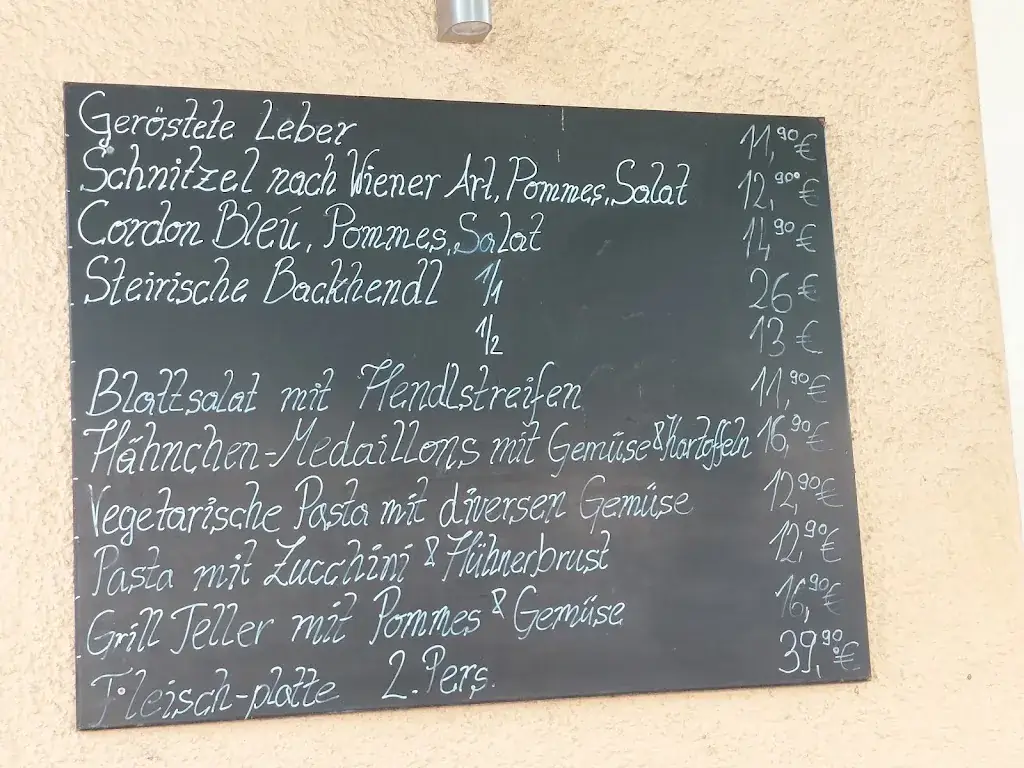 Geröstete Leber 11,90 €
Schnitzel nach Wiener Art, Pommes, Salat 12,90 €
Cordon Bleu, Pommes, Salat 14,90 €
Steirische Backhendl 1/1 26 €
1/2 13 €
Blattsalat mit Hendlstreifen 11,90 €
Hähnchen-Medaillons mit Gemüse & Kartoffeln 16,90 €
Vegetarische Pasta mit diversen Gemüse 12,90 €
Pasta mit Zucchini & Hühnerbrust 12,90 €
Grill Teller mit Pommes & Gemüse 16,90 €
Fleisch-platte 2. Pers. 39,90 €